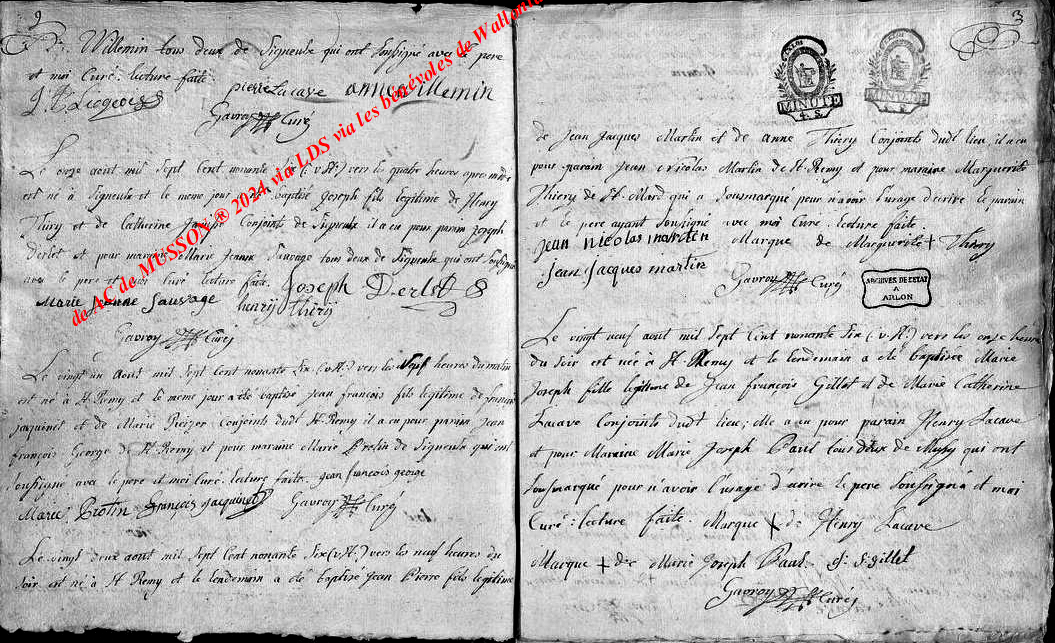 2
Dr. Willemin tous deux de Signeulx qui ont soussigné avec le pere
et moi Curé: lecture faite.
pierre Lacave anne willemin
Gavroy Curé
Le onze aout mil sept Cent nonante six (: v. st.) vers les quatre heures apres midi
est né a Signeulx et le meme jour baptisé Joseph fils legitime de Henry
Thiry et de Catherine Conjoints de Signeulx il a eu pour parain Joseph
Derlet et pour maraine Marie Jeanne Sauvage tous deux de Signeulx qui ont soussigné
avec le pere et moi Curé lecture faite. Joseph Derlet
Marie Jeanne Sauvage henry Thiry
Gavroy Curé
Le vingt un Aout mil sept Cent nonante six (v. st.) vers les neuf heures du matin
est né à St Remy et le meme jour a été baptisé jean françois fils legitime de françois
jacquinet et de Marie Conjoints dudt St Remy il a eu pour parain Jean
françois George de St Remy et pour maraine Marie Protin de Signeulx qui ont
soussigné avec le pere et moi Curé: lecture faite. jean francois george
Marie Protin François jacquinet Gavroy Curé
Le vingt deux aout mil sept Cent nonante six (v. st.) vers les neuf heures du
soir est né à St Remy et le lendemain a été baptisé Jean Pierre fils legitime
3
MINUTE
4. S.
MINUTE
de Jean Jacques Martin et de anne Thiery Conjoints dudt lieu, il a eu
pour parain Jean Nicolas Martin de St Remy et pour maraine Marguerite
Thiery de St Mard qui a soumarqué pour n'avoir l'usage d'ecrire le parain
et le pere ayant soussigné avec moi Curé: lecture faite.
jean nicolas marten Marque de Marguerite + Thiery
jean jacques martin
Gavroy Curé
ARCHIVES DE L'ETAT
A
ARLON
Le vingt neuf aout mil sept Cent nonante six (v. st.) vers les onze heures
du soir est né à St Remy et le lendemain a été baptisée Marie
Joseph fille legitime de Jean françois Gillet et de Marie Catherine
Lacave Conjoints dudt lieu; elle a eu pour parain Henry Lacave
et pour Maraine Marie Joseph Paul tous deux de Mussy qui ont
soumarqué pour n'avoir l'usage d'ecrire le pere soussigné et moi
Curé: lecture faite. Marque + de Henry Lacave
Marque + de Marie Joseph Paul. j. f. gillet
Gavroy Curé
de AC de MUSSON ® 2024 via LDS via les bénévoles de Wallonie